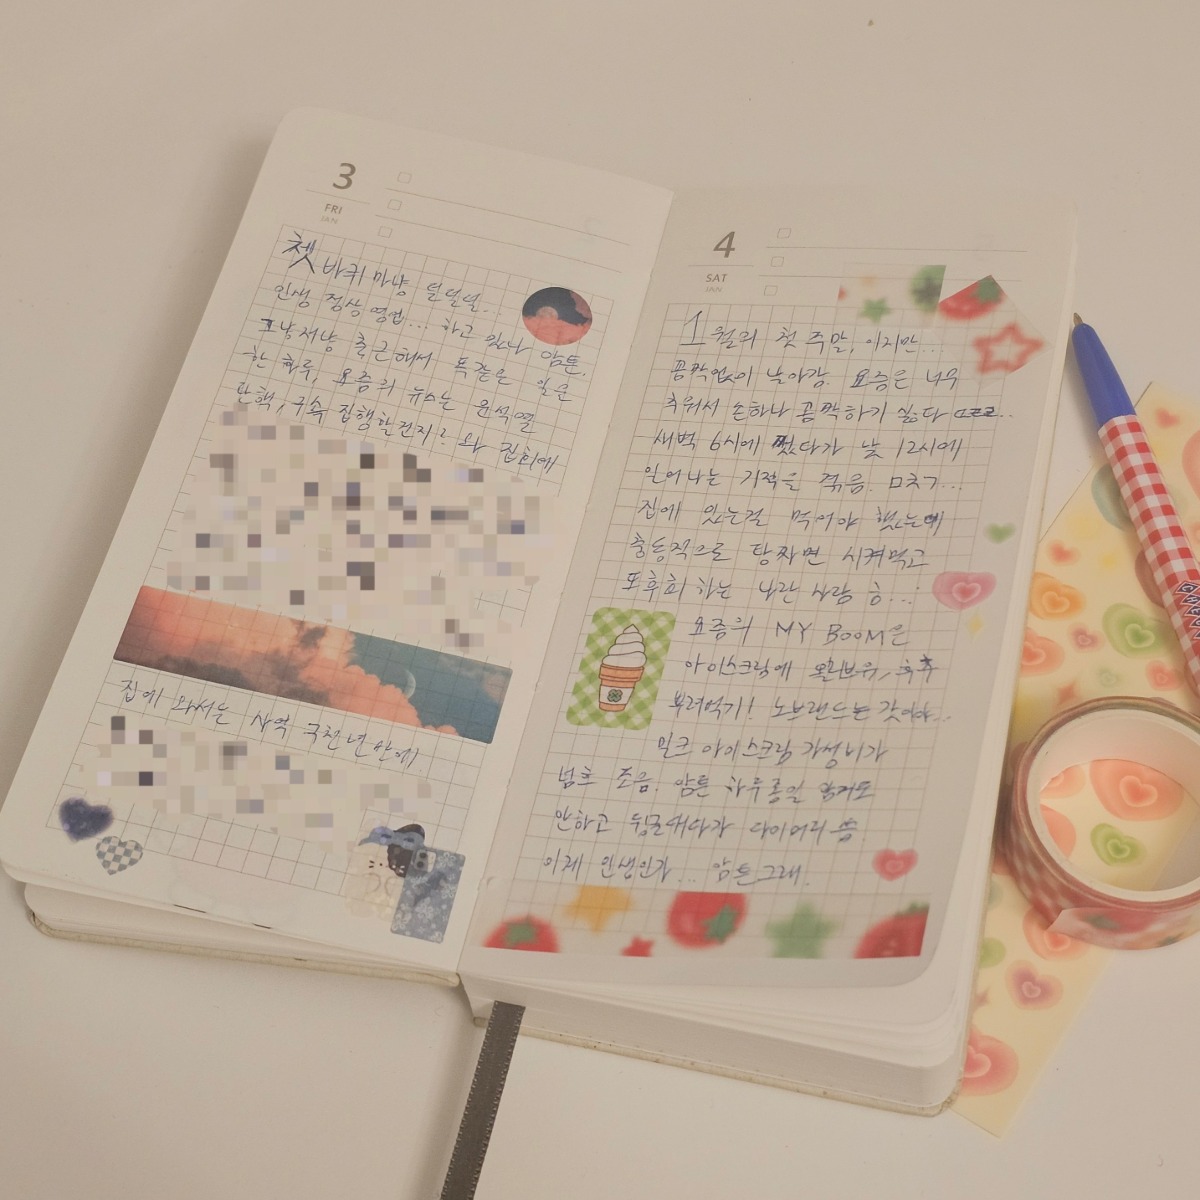 3
FRI
JAN
쳇바퀴 마냥 덜덜덜...
인생 정상 영업... 하고 있나 암튼.
그냥저냥 출근해서 똑같은 일을
한 하루, 요즘의 뉴스는 윤석열
탄핵, 구속 집행할건지? 와 집회에
집에 와서는 사역 국천년만에
4
SAT
JAN
1월의 첫 주말, 이지만...
콤짝없이 녹아감. 요즘은 너무
추워서 손하나 꼼짝하기 싫다 ㄹㅈㅈ..
새벽 6시에 잤다가 낮 12시에
일어나는 기적을 겪음. ㅁㅊㄱ...
집에 있는걸 먹어야 했는데
충동적으로 탕짜면 시켜먹고
또 후회 하는 나란 사람 흠...
요즘의 MY BOOM은
아이스크림에 올리브유, 후추
뿌려먹기! 노브랜드는 갓이야..
밀크 아이스크림 가성비가
넘츠 조음. 암튼 하루종일 암거도
안하고 뒹굴대다가 다이어리 씀
이게 인생인가... 암튼 그래.